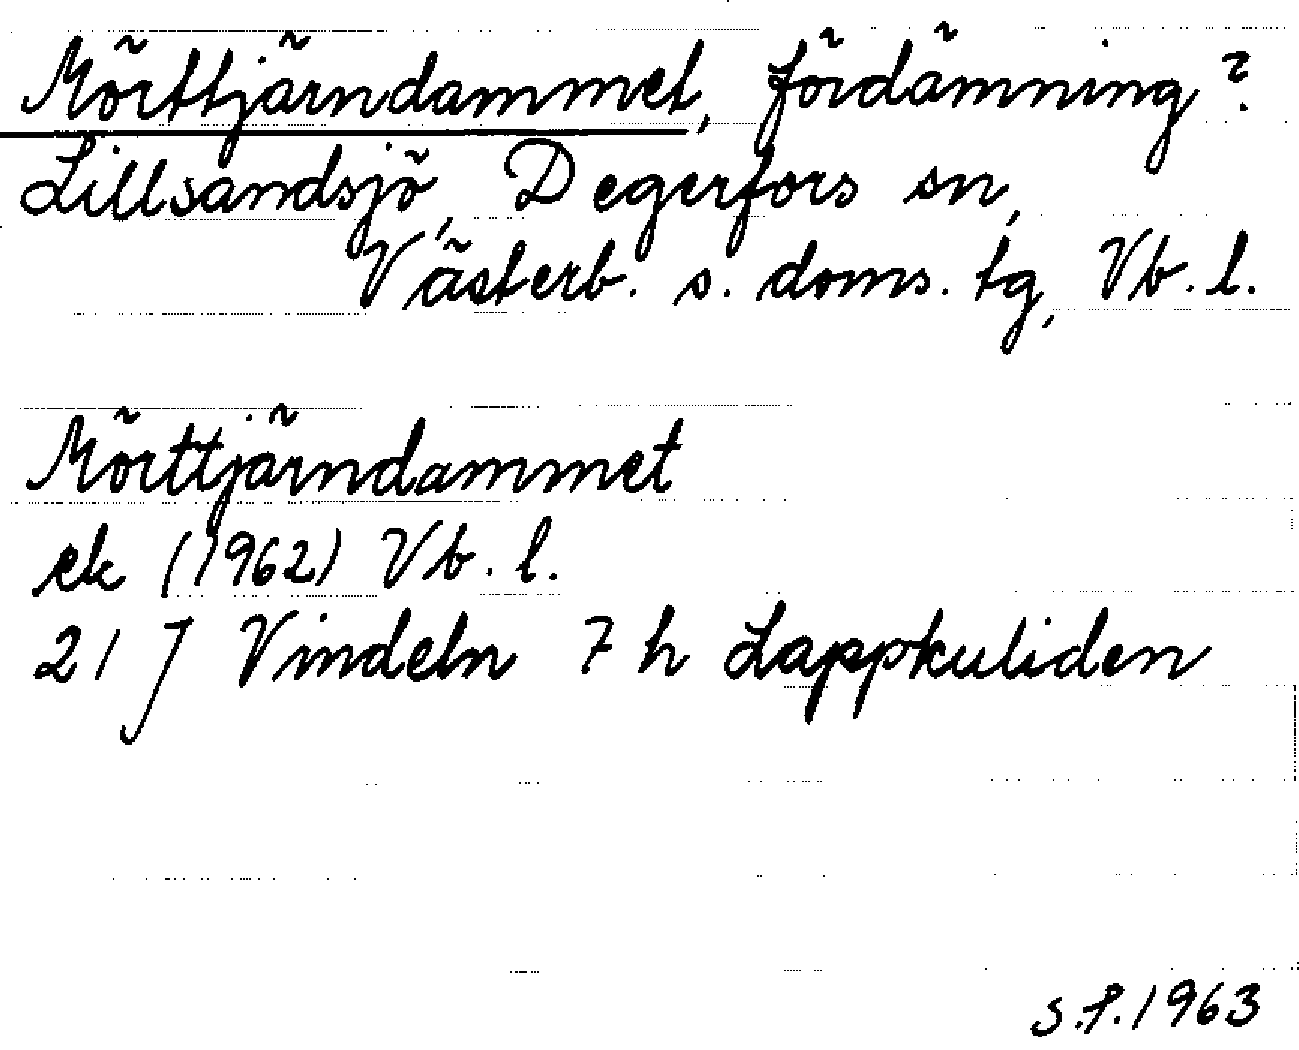 Mörttjärndammet, fördämning?
Lillsandsjö, Degerfors sn,
Västerb. s. doms. tg, Vb. l.
Mörttjärndammet
ek (1962) Vb. l.
21 J Vindeln 7 h Lappkuliden
S.P. 1963